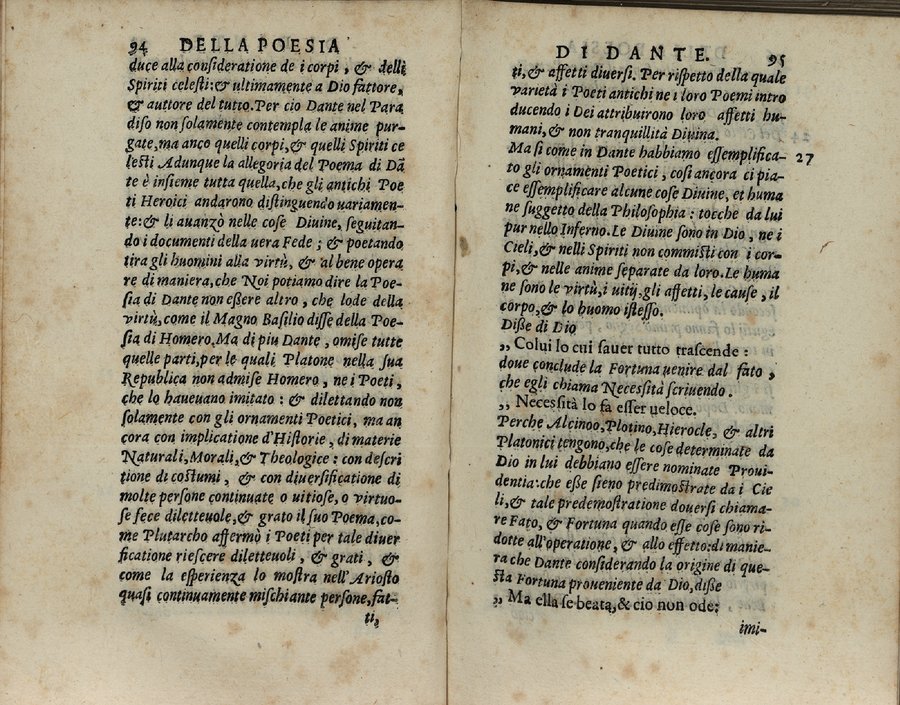 94 DELLA POESIA
duce alla consideratione de i corpi, & delli
Spiriti celesti:& ultimamente a Dio fattore,
& auttore del tutto.Per cio Dante nel Para
diso non solamente contempla le anime pur-
gate,ma anco quelli corpi,& quelli Spiriti ce
lesti Adunque la allegoria del Poema di Dã
te è insieme tutta quella,che gli antichi Poe
ti Heroici andarono distinguendo uariamen-
te:& li auanzò nelle cose Diuine, seguitan-
do i documenti della uera Fede ; & poetando
tira gli huomini alla virtù, & al bene opera
re di maniera,che Noi potiamo dire la Poe-
sia di Dante non eßere altro , che lode della
virtù,come il Magno Basilio disse della Poe-
sia di Homero.Ma di piu Dante , omise tutte
quelle parti,per le quali Platone nella sua
Republica non admise Homero , ne i Poeti,
che lo haueuano imitato : & dilettando non
solamente con gli ornamenti Poetici, ma an
cora con implicatione d'Historie , di materie
Naturali,Morali,& Theologice : con descri
tione di costumi , & con diuersificatione di
molte persone continuate o uitiose, o virtuo-
se fece diletteuole,& grato il suo Poema,co-
me Plutarcho affermò i Poeti per tale diuer
sificatione riescere diletteuoli , & grati , &
come la esperienza lo mostra nell'Ariosto
quasi continuamente mischiante persone,fat-
ti,
DI DANTE. 95
ti,& affetti diuersi. Per rispetto della quale
varietà i Poeti antichi ne i loro Poemi intro
ducendo i Dei attribuirono loro affetti hu-
mani,& non tranquillità Diuina.
Ma si come in Dante habbiamo essemplifica- 27
to gli ornamenti Poetici , così ancora ci pia-
ce essemplificare alcune cose Diuine, et huma
ne suggetto della Philosophia : tocche da lui
pur nello Inferno.Le Diuine sono in Dio , ne i
Cieli,& nelli Spiriti non commisti con i cor-
pi,& nelle anime separate da loro.Le huma
ne sono le virtù,i uitij,gli affetti, le cause , il
corpo,& lo huomo istesso.
Diße di Dio
„ Colui lo cui sauer tutto trascende :
doue conclude la Fortuna uenire dal fato ,
che egli chiama Necessità scriuendo .
„ Necessità lo fa esser ueloce.
Perche Alcinoo,Plotino,Hierocle, & altri
Platonici tengono,che le cose determinate da
Dio in lui debbiano essere nominate Proui-
dentia:che eße sieno predimostrate da i Cie
li,& tale predemostratione douersi chiama-
re Fato, & Fortuna quando esse cose sono ri-
dotte all'operatione, & allo effetto:di manie-
ra che Dante considerando la origine di que-
sta Fortuna proueniente da Dio,diße
„ Ma ella se beata,& cio non ode:
imi-